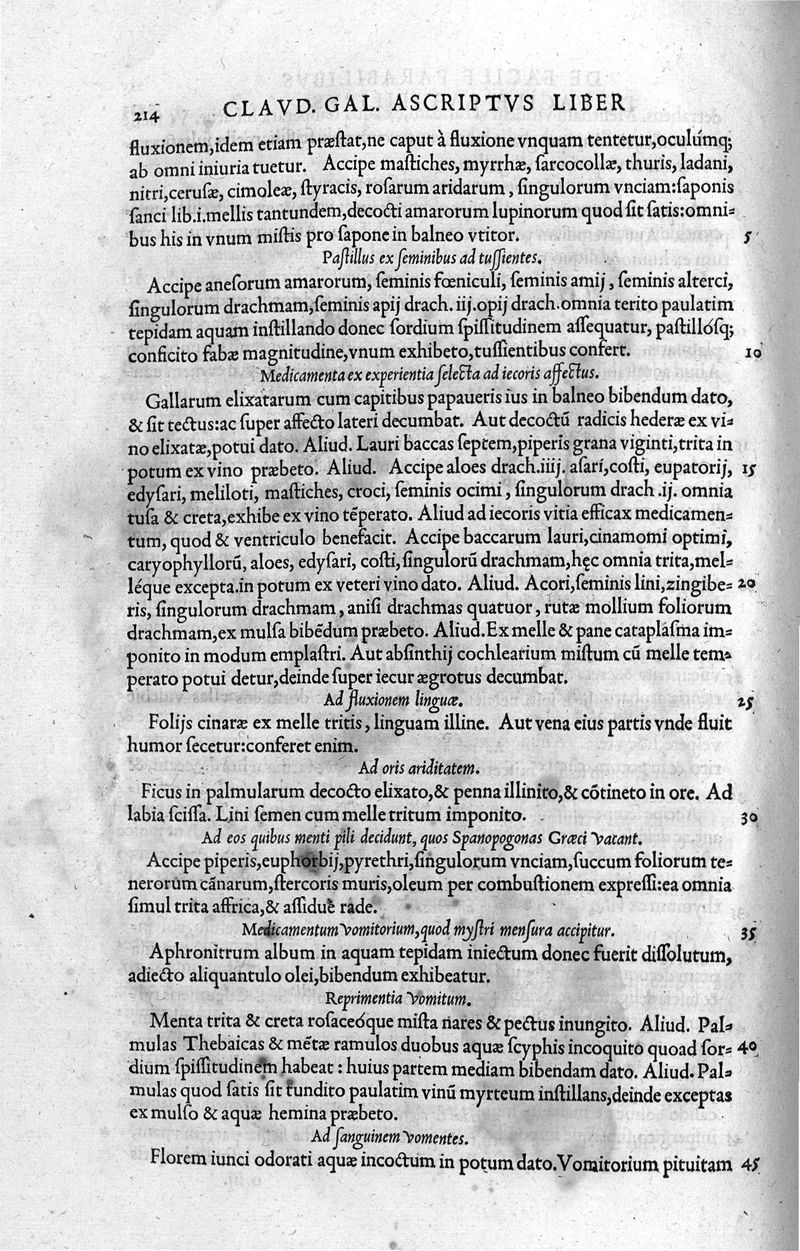 214 CLAVD. GAL. ASCRIPTVS LIBER
fluxionem,idem etiam præſtat,ne caput à fluxione vnquam tentetur,oculúmq;
ab omni iniuria tuetur. Accipe maſtiches, myrrhæ, ſarcocollæ, thuris, ladani,
nitri,ceruſæ, cimoleæ, ſtyracis, roſarum aridarum, ſingulorum vnciam:ſaponis
ſanci lib.i.mellis tantundem,decocti amarorum lupinorum quod ſit ſatis:omni=
bus his in vnum miſtis pro ſapone in balneo vtitor. 5
Paſtillus ex ſeminibus ad tuſſientes.
Accipe aneſorum amarorum, ſeminis fœniculi, ſeminis amij, ſeminis alterci,
ſingulorum drachmam,ſeminis apij drach.iij.opij drach.omnia terito paulatim
tepidam aquam inſtillando donec ſordium ſpiſſitudinem aſſequatur, paſtillóſq;
conficito fabæ magnitudine,vnum exhibeto,tuſſientibus confert. 10
Medicamenta ex experientia ſelecta ad iecoris affectus.
Gallarum elixatarum cum capitibus papaueris ius in balneo bibendum dato,
& ſit tectus:ac ſuper affecto lateri decumbat. Aut decoctū radicis hederæ ex vi=
no elixatæ,potui dato. Aliud. Lauri baccas ſeptem,piperis grana viginti,trita in
potum ex vino præbeto. Aliud. Accipe aloes drach.iiij. aſari,coſti, eupatorij, 15
edyſari, meliloti, maſtiches, croci, ſeminis ocimi, ſingulorum drach.ij. omnia
tuſa & creta,exhibe ex vino tēperato. Aliud ad iecoris vitia efficax medicamen=
tum, quod & ventriculo benefacit. Accipe baccarum lauri,cinamomi optimi,
caryophyllorū, aloes, edyſari, coſti,ſingulorū drachmam,hęc omnia trita,mel=
léque excepta.in potum ex veteri vino dato. Aliud. Acori,ſeminis lini,zingibe= 20
ris, ſingulorum drachmam, aniſi drachmas quatuor, rutæ mollium foliorum
drachmam,ex mulſa bibēdum præbeto. Aliud.Ex melle & pane cataplaſma im=
ponito in modum emplaſtri. Aut abſinthij cochlearium miſtum cū melle tem=
perato potui detur,deinde ſuper iecur ægrotus decumbat.
Ad fluxionem linguæ. 25
Folijs cinaræ ex melle tritis, linguam illine. Aut vena eius partis vnde fluit
humor ſecetur:conferet enim.
Ad oris ariditatem.
Ficus in palmularum decocto elixato,& penna illinito,& cōtineto in ore. Ad
labia ſciſſa. Lini ſemen cum melle tritum imponito. 30
Ad eos quibus menti pili decidunt, quos Spanopogonas Græci vacant.
Accipe piperis,euphorbij,pyrethri,ſingulorum vnciam,ſuccum foliorum te=
nerorum cānarum,ſtercoris muris,oleum per combuſtionem expreſſi:ea omnia
ſimul trita affrica,& aſſiduè rade.
Medicamentum vomitorium,quod myſtri menſura accipitur. 35
Aphronitrum album in aquam tepidam iniectum donec fuerit diſſolutum,
adiecto aliquantulo olei,bibendum exhibeatur.
Reprimentia vomitum.
Menta trita & creta roſaceóque miſta nares & pectus inungito. Aliud. Pal=
mulas Thebaicas & mētæ ramulos duobus aquæ ſcyphis incoquito quoad ſor= 40
dium ſpiſſitudinem habeat: huius partem mediam bibendam dato. Aliud. Pal=
mulas quod ſatis ſit tundito paulatim vinū myrteum inſtillans,deinde exceptas
ex mulſo & aquæ hemina præbeto.
Ad ſanguinem vomentes.
Florem iunci odorati aquæ incoctum in potum dato.Vomitorium pituitam 45